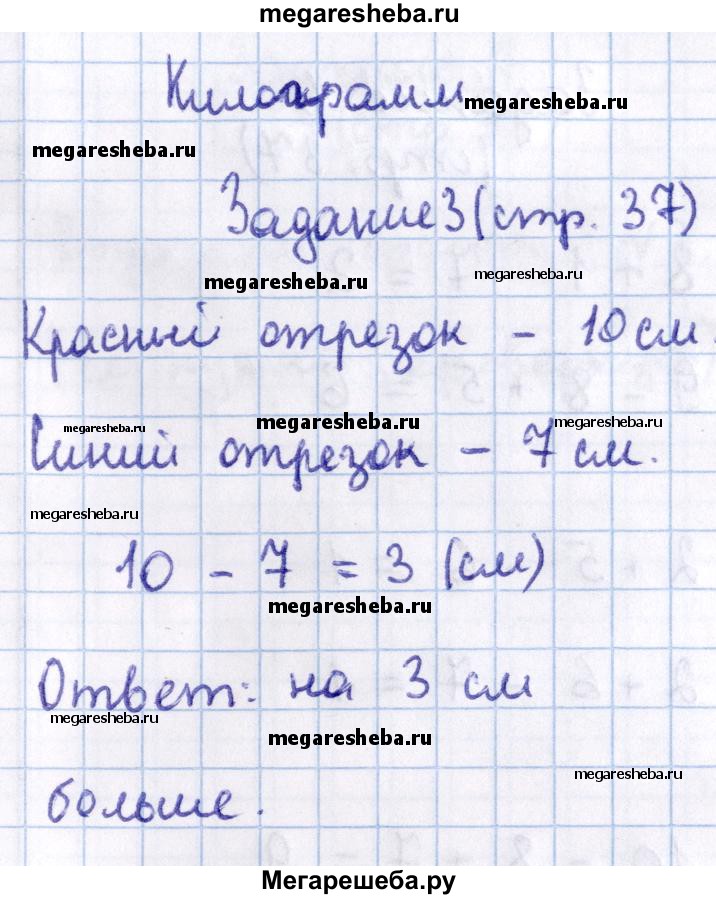 megaresheba.ru
Килограмм megaresheba.ru
megaresheba.ru
Задание 3 (стр. 37)
megaresheba.ru megaresheba.ru
Красный отрезок - 10 см.
megaresheba.ru megaresheba.ru megaresheba.ru
Синий отрезок - 7 см.
megaresheba.ru
10 - 7 = 3 (см)
megaresheba.ru
Ответ: на 3 см
megaresheba.ru megaresheba.ru
megaresheba.ru
больше.
Мегарешеба.ру